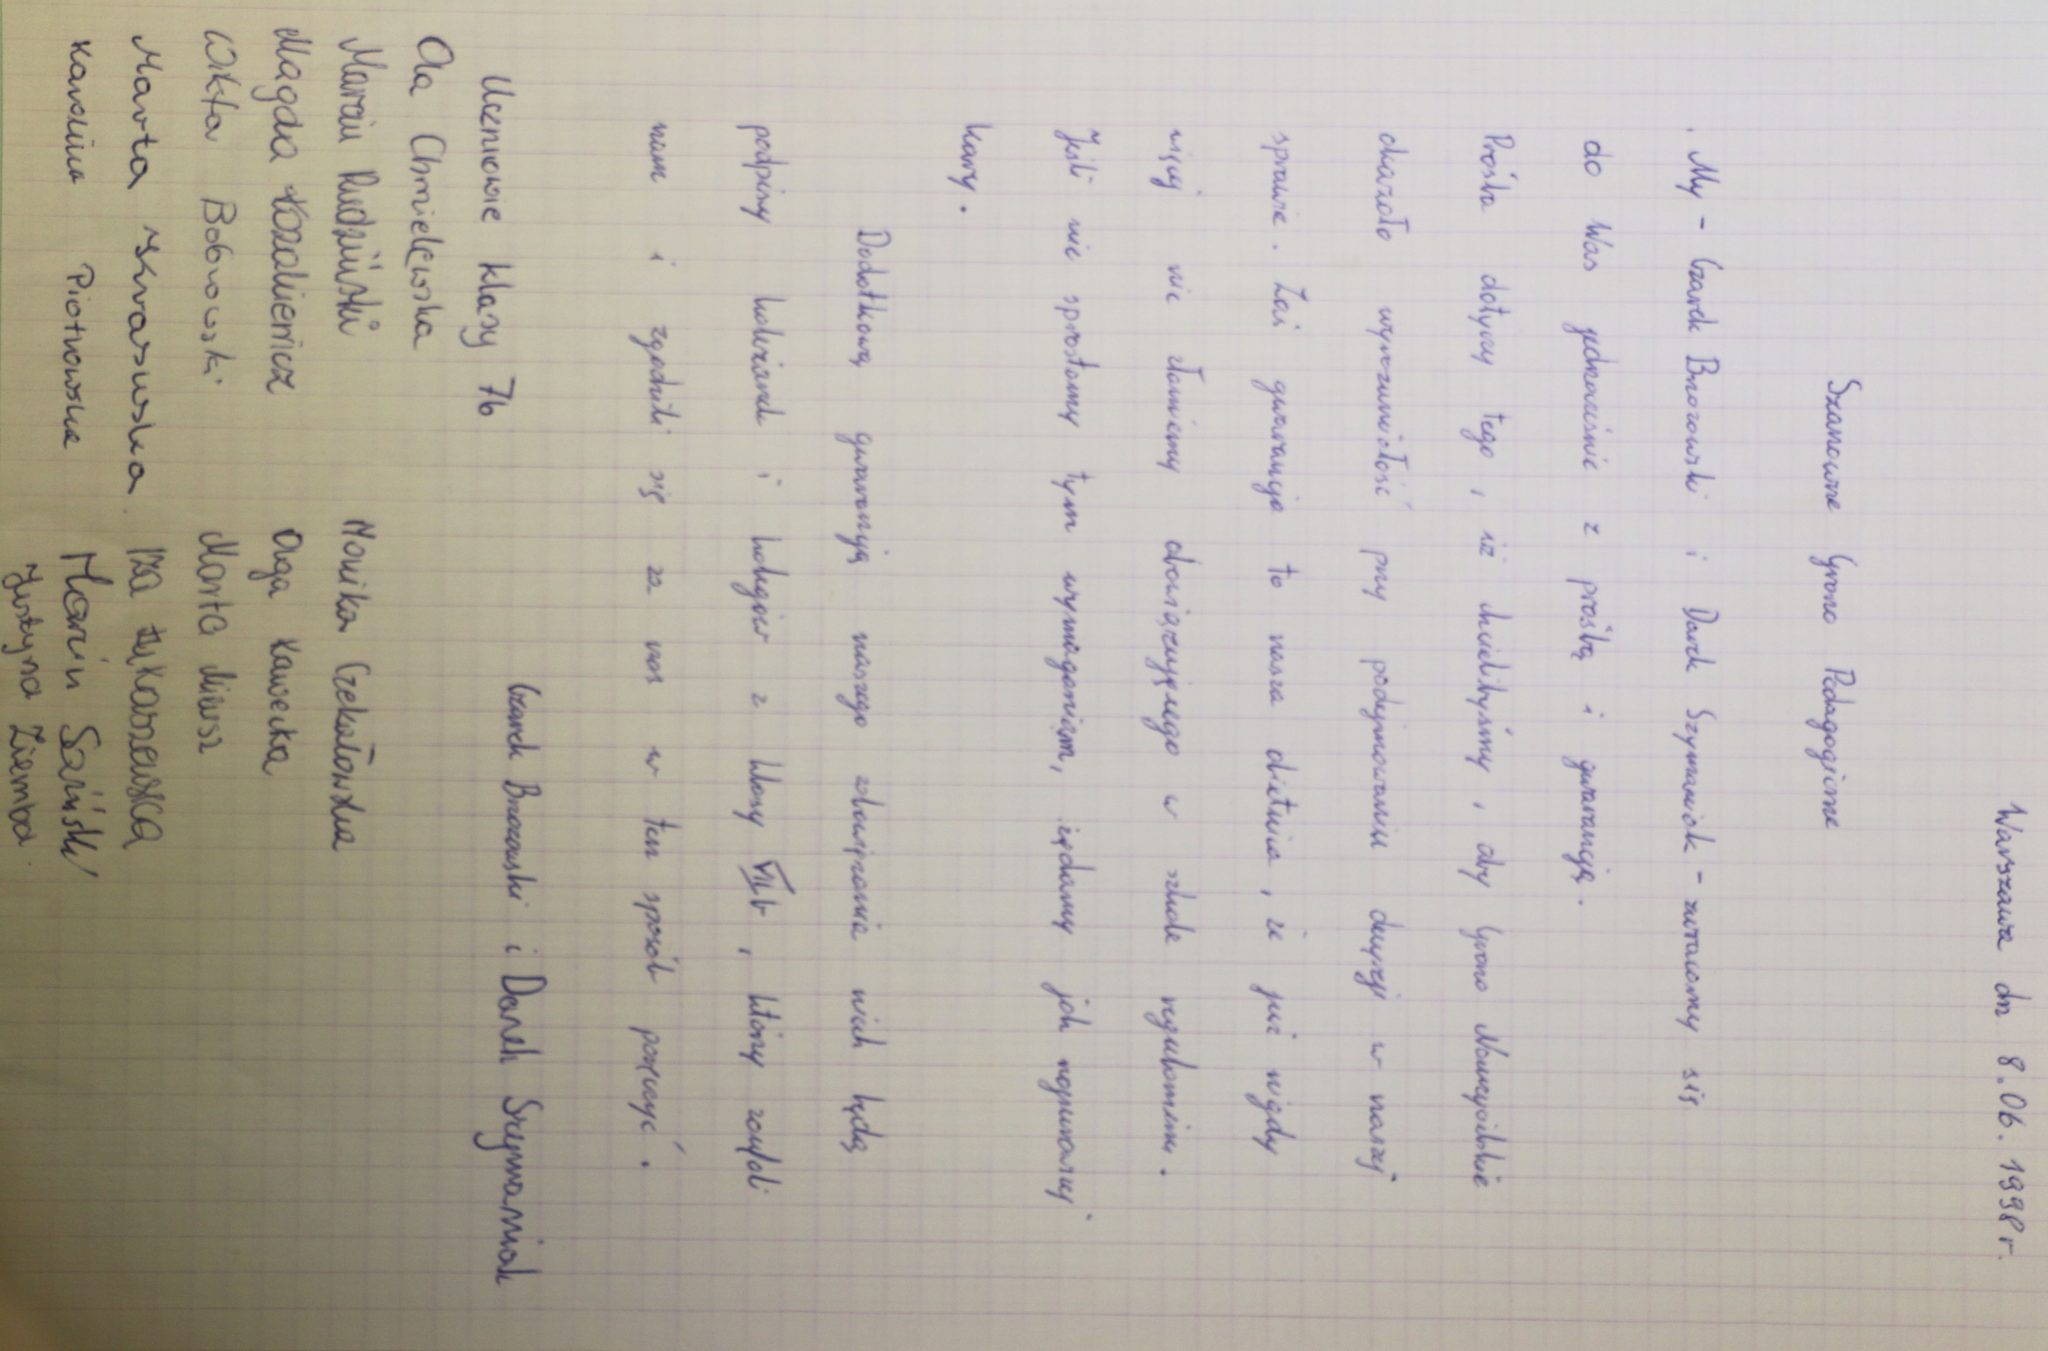 Warszawa dn 8.06.1998r.
Szanowne Grono Pedagogiczne
My - Czarek Brzozowski i Darek Szymaniak - zwracamy się
do Was jednocześnie z prośbą i gwarancją.
Prośba dotyczy tego, iż chcielibyśmy, aby Grono Nauczycielskie
okazało wyrozumiałość przy podejmowaniu decyzji w naszej
sprawie. Zaś gwarancja to nasza obietnica, że już nigdy
więcej nie złamiemy obowiązującego w szkole regulaminu.
Jeśli nie sprostamy tym wymaganiom, żądamy jak najsurowszej
kary.
Dodatkową gwarancją naszego zobowiązania niech będą
podpisy koleżanek i kolegów z klasy VIIb, którzy zaufali
nam i zgodzili się za nas w ten sposób poręczyć.
Czarek Brzozowski i Darek Szymaniak
Uczniowie klasy 7b
Ola Chmielewska
Marcin Rudziński Monika Czekałowska
Magda Kozakiewicz Olga Kawecka
Wiktor Bobrowski Marta Miusz
Marta Skrasuska Iza Łukaszewska
Karolina Piotrowska Marcin Saiński
Justyna Ziemba.